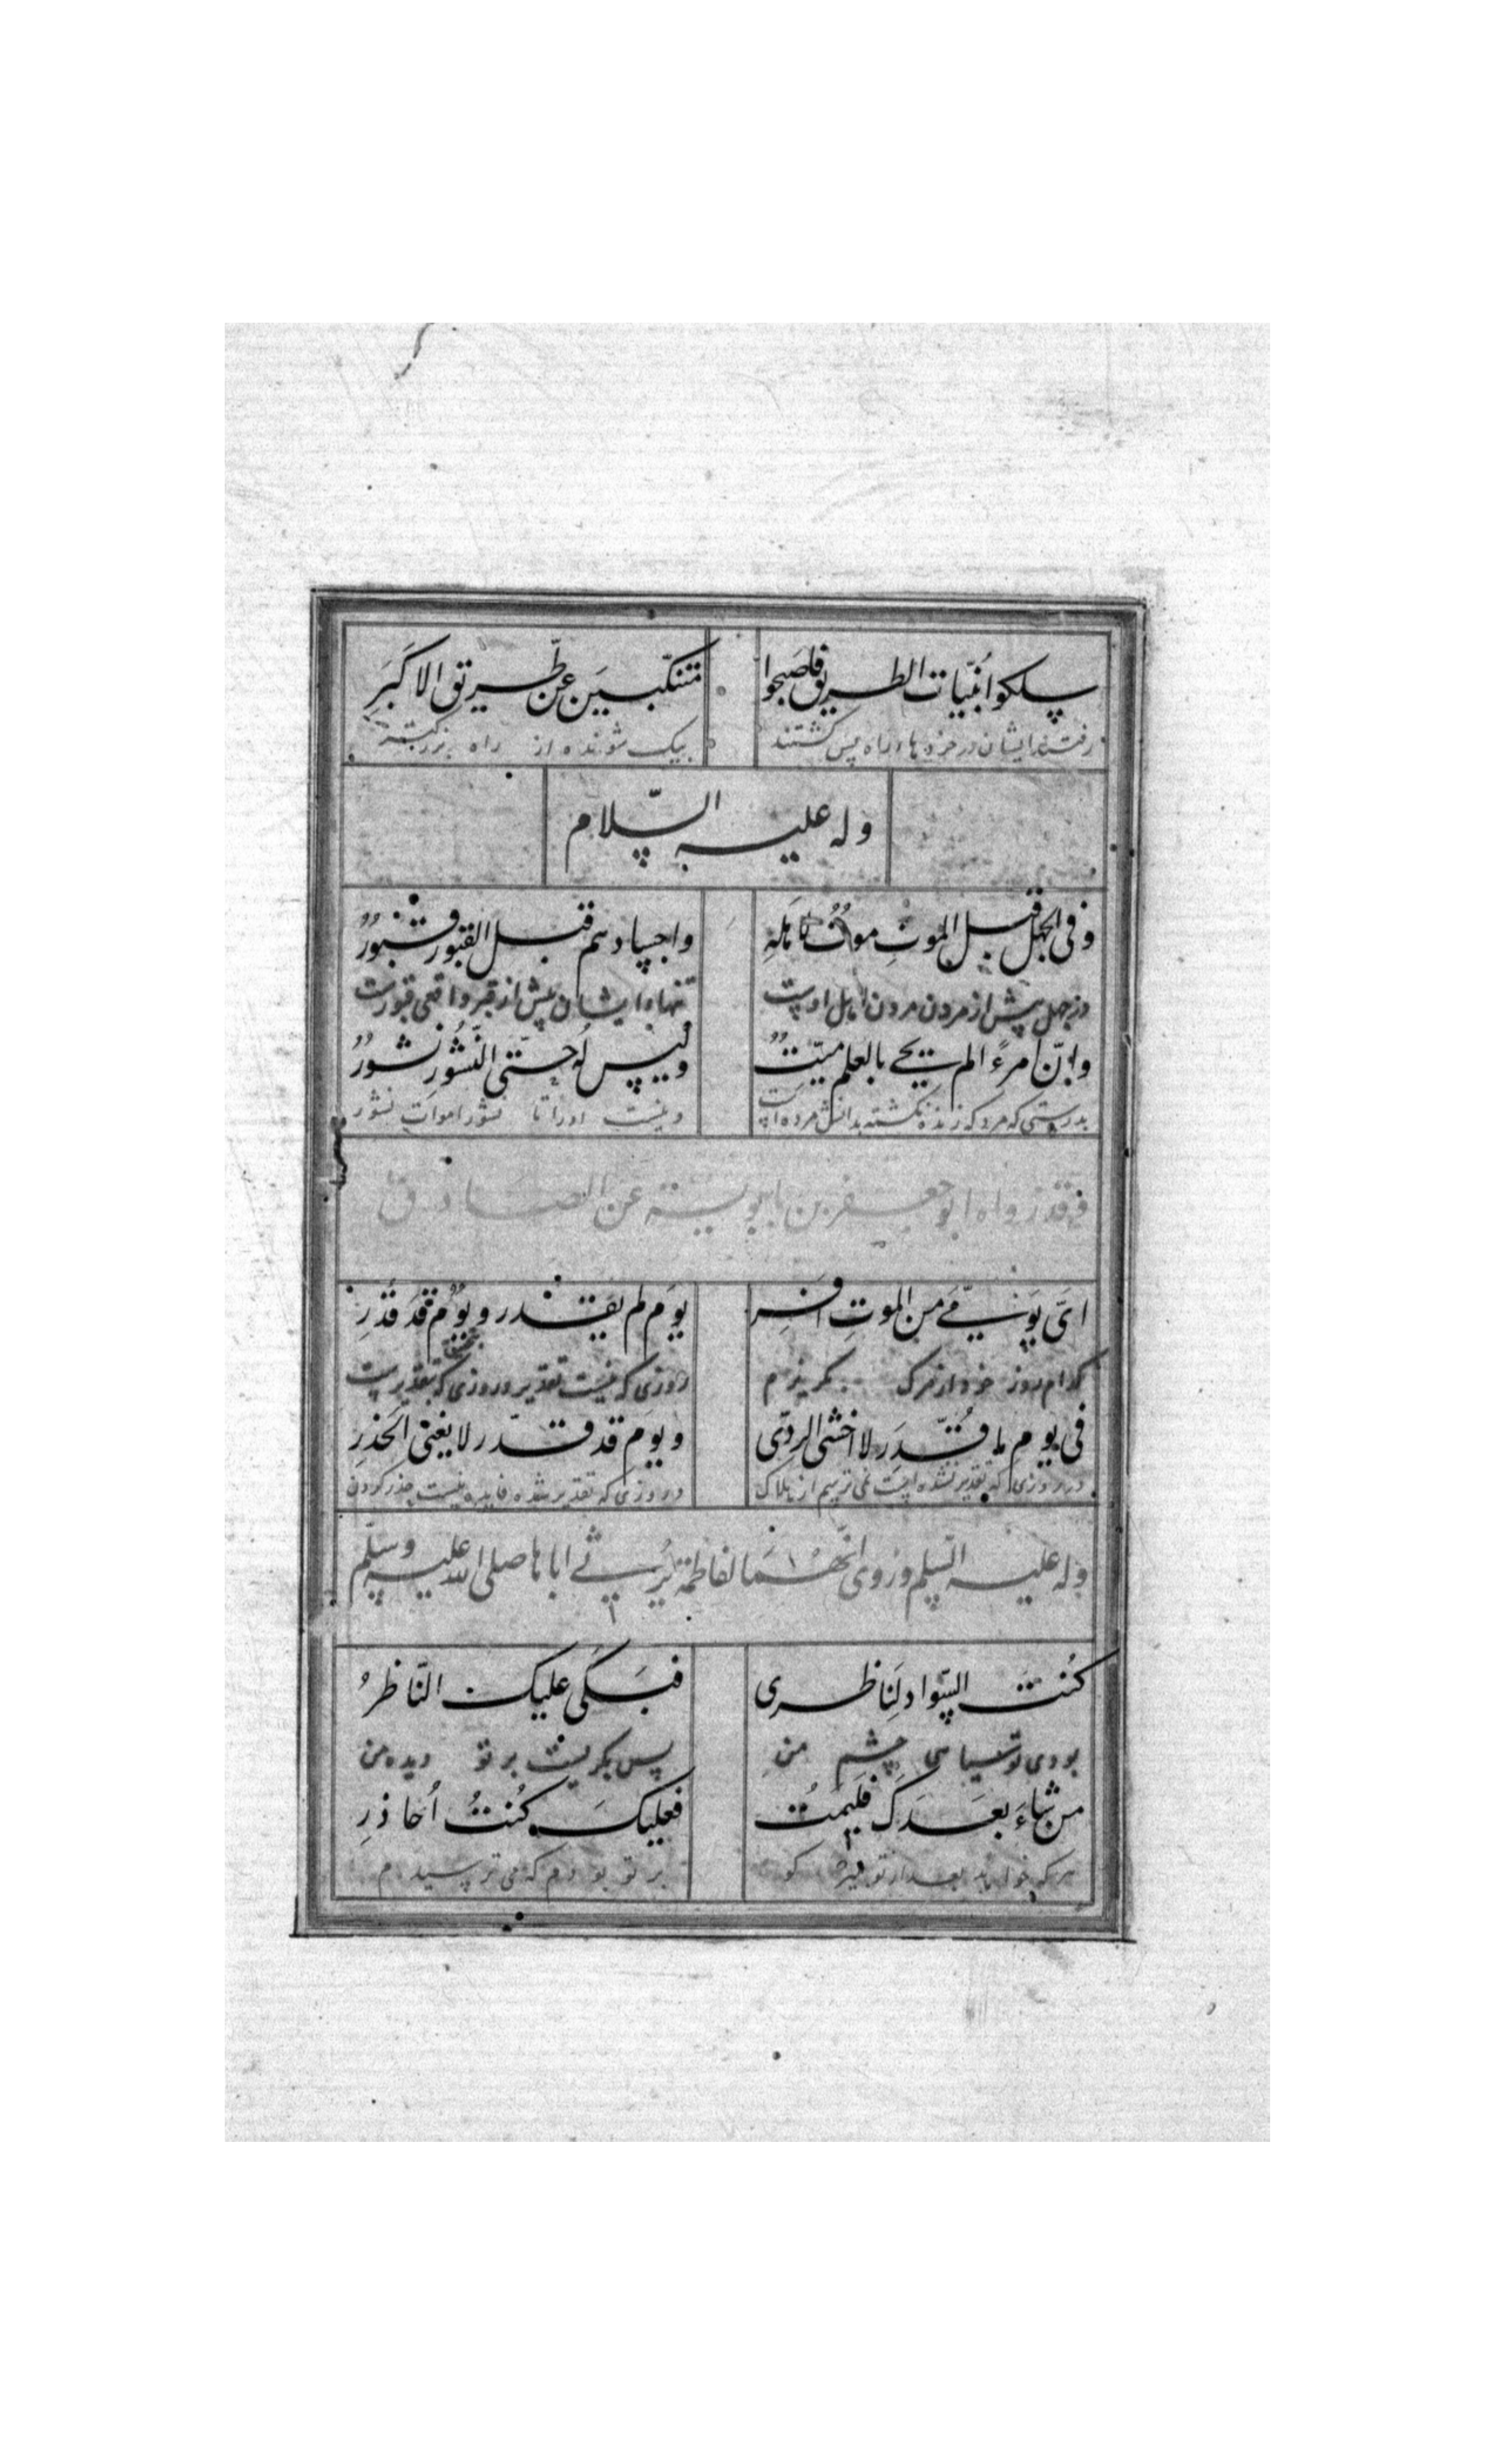 سلكوا بُنّيات الطريق فاصبحوا متنكّبين عن طّريق الاكبَرِ
رفتند ايشان در خورده‌ها راه پس كشتند بيك شونده از راه بزركتر
وله عليه السّلام
وفى الجهل قبل الموتِ موتٌ لاهله واجسادهم قبل القبور قبورُ
در جهل پيش از مردن مردن اهل اوست تنهاء ايشان پيش از قبر واقعى قبورست
وانّ امرءً الم يحى بالعلم ميّتٌ وليس له حتّى النّشور نشورُ
بدرستى كه مرد كه زنده نكشته بدانش مرده است ونيست اورا تا نشور اموات نشور
فقد رواه ابو جعفر بن بابويه عن الصادق
اىّ يومىّ من الموتِ افر يوم لم يقدر ويوم قد قدرِ
كدام روز خود از مرك كريزم روزى كه نيست تقدير و روزى كه بتقديرست
فى يوم ما قُدّر لا اخشى الردى ويوم قد قدّر لا يغنى الحذرِ
در روزى كه تقدير نشده است نمى ترسم از هلاك در روزى كه تقدير شده فايده نيست حذر كردن
وله عليه السّلم وروى انّهما لفاطمة ترثى اباها صلى الله عليه وسلّم
كُنتَ السّواد لِناظرى فبَكى عليك النّاظرُ
بودى تو سياهى چشم من پس بكريست بر تو ديده من
من شاءَ بعدَكَ فليمُت فعليكَ كُنتُ اُحاذرِ
هر كه خواهد بعد از تو ميرد كو بر تو بودم كه مى ترسيدم